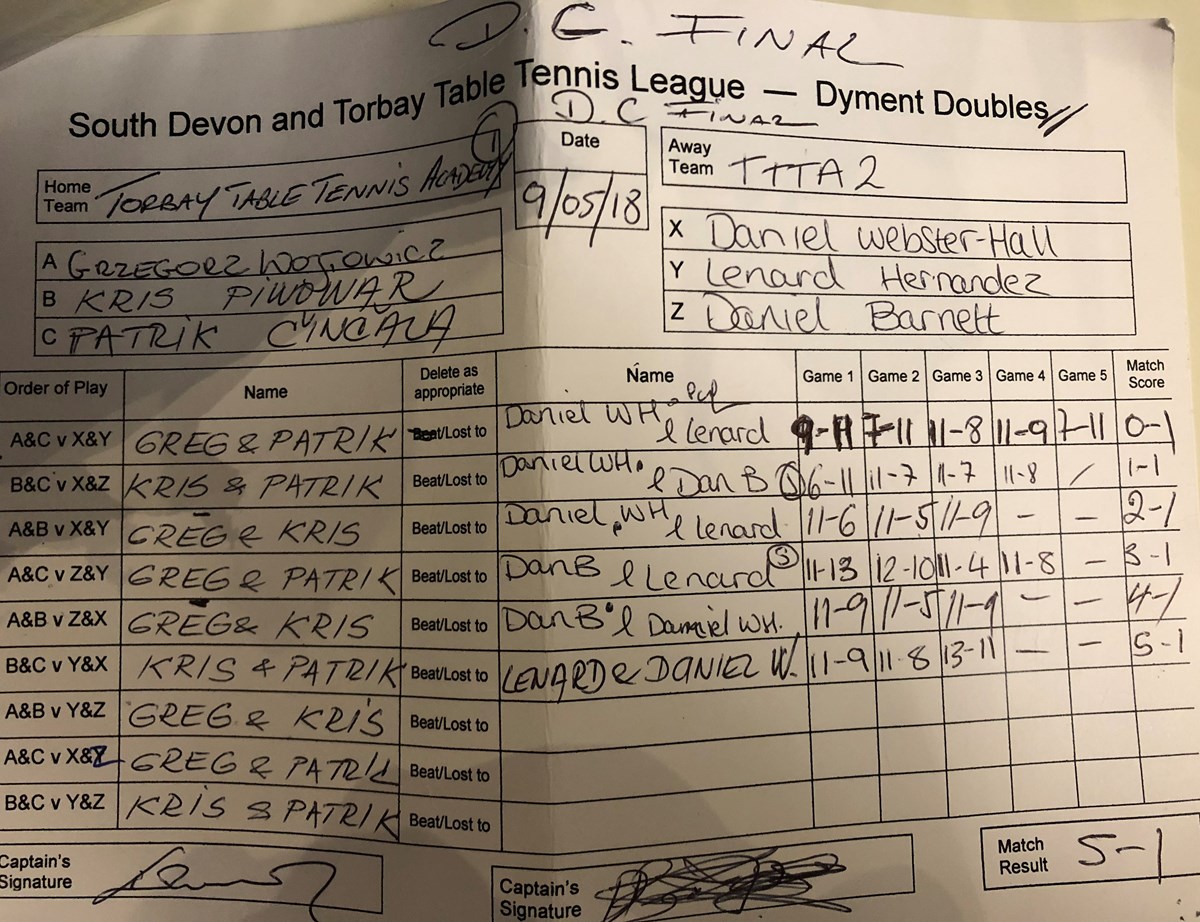 D.C. FINAL
South Devon and Torbay Table Tennis League — Dyment Doubles
D.C FINAL
Home Team TORBAY TABLE TENNIS ACADEMY 1
Date
9/05/18
Away Team TTTA 2
A GRZEGORZ WOJOWICZ
B KRIS PIWOWAR
C PATRIK CYNCALA
X Daniel Webster-Hall
Y Lenard Hernandez
Z Daniel Barnett
Order of Play Name Delete as appropriate Name Game 1 Game 2 Game 3 Game 4 Game 5 Match Score
A&C v X&Y GREG & PATRIK Beat/Lost to Daniel WH & Lenard 9-11 7-11 11-8 11-9 7-11 0-1
B&C v X&Z KRIS & PATRIK Beat/Lost to Daniel WH. & Dan B (S) 6-11 11-7 11-7 11-8 / 1-1
A&B v X&Y GREG & KRIS Beat/Lost to Daniel WH & Lenard 11-6 11-5 11-9 - - 2-1
A&C v Z&Y GREG & PATRIK Beat/Lost to Dan B & Lenard (S) 11-13 12-10 11-4 11-8 - 3-1
A&B v Z&X GREG & KRIS Beat/Lost to Dan B & Daniel WH. 11-9 11-5 11-9 - - 4-1
B&C v Y&X KRIS & PATRIK Beat/Lost to LENARD & DANIEL W. 11-9 11-8 13-11 - - 5-1
A&B v Y&Z GREG & KRIS Beat/Lost to
A&C v X&Z GREG & PATRIK Beat/Lost to
B&C v Y&Z KRIS & PATRIK Beat/Lost to
Captain's Signature
Captain's Signature
Match Result 5-1